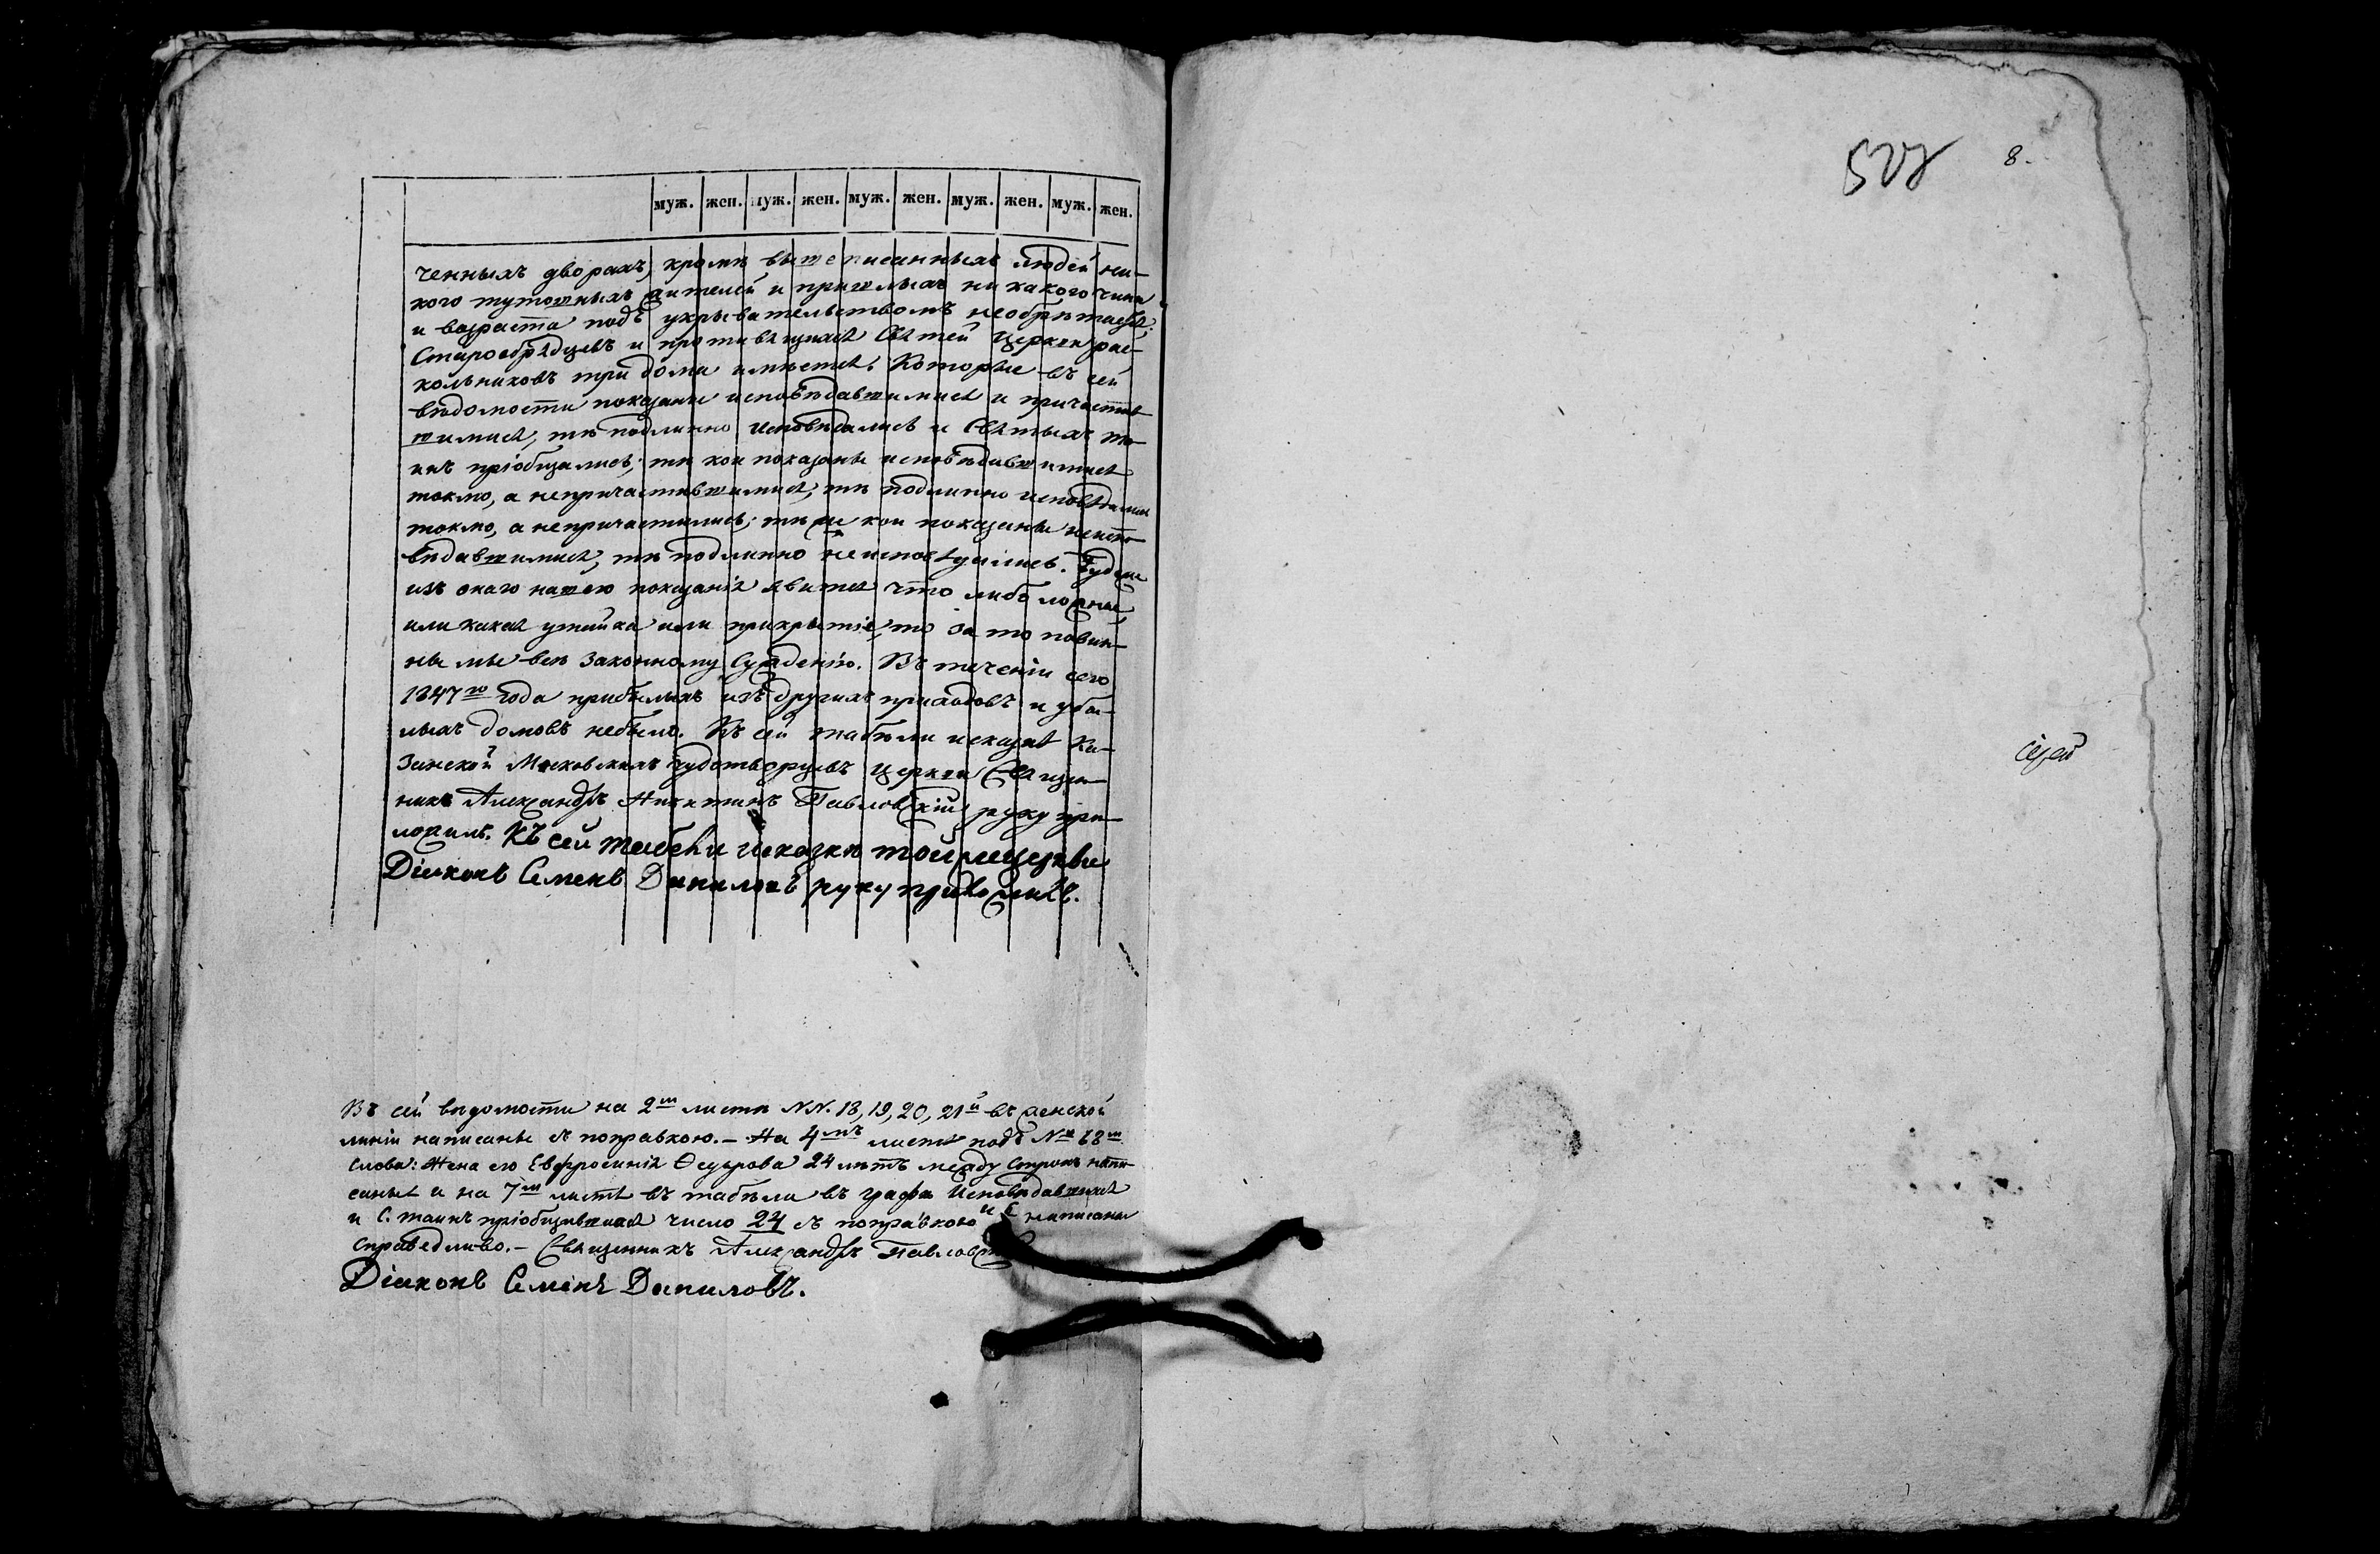 муж. жен. муж. жен. муж. жен. муж. жен. муж. жен.
ченныхъ дворахъ, кромѣ вышеписанныхъ людей ни-
кого тутошныхъ жителей и пришлыхъ никакого чина
и возраста подъ укрывательствомъ необрѣтается.
Старообрядцевъ и противящихся Святей Церкви рас-
кольниковъ три дома имѣется. Которые въ сей
вѣдомости показаны исповѣдавшимися и причастив-
шимися, тѣ подлинно исповѣдались и Святыхъ та-
инъ пріобщались; тѣ кои показаны исповѣдавшимися
токмо, а непричастившимися, тѣ подлинно исповѣдались
токмо, а непричастились; тѣ же кои показаны неиспо-
вѣдавшимися, тѣ подлинно неисповѣдались. Буде же
изъ онаго нашего показанія явится что либо ложное,
или какая утайка или прикрытіе, то за то повин-
ны мы всѣ законному сужденію. Въ теченіи сего
1847го года прибылыхъ изъ другихъ приходовъ и убы-
лыхъ домовъ небыло. Къ сей табели исказкѣ Ка-
занской Московскихъ Чудотворцевъ церкви Священ-
никъ Александръ Никитинъ Павловскій руку при-
ложилъ. Къ сей табели исказкѣ тойжецеркви
Діяконъ Семенъ Даниловъ руку приложилъ.
Въ сей вѣдомости на 2м листѣ NN. 18, 19, 20, 21й въ женской
линіи написаны съ поправкою. – На 4мъ листѣ подъ Nм 68м
слова: Жена его Евфросинія Ѳедорова 24 лѣтъ между строкъ напи-
саны и на 7м листѣ въ табели въ графѣ исповѣдавшихся
и С. таинъ пріобщившихся число 24 съ поправкою написаны
справедливо. – Священникъ Александръ Павловскій
Діяконъ Семенъ Даниловъ.
8.